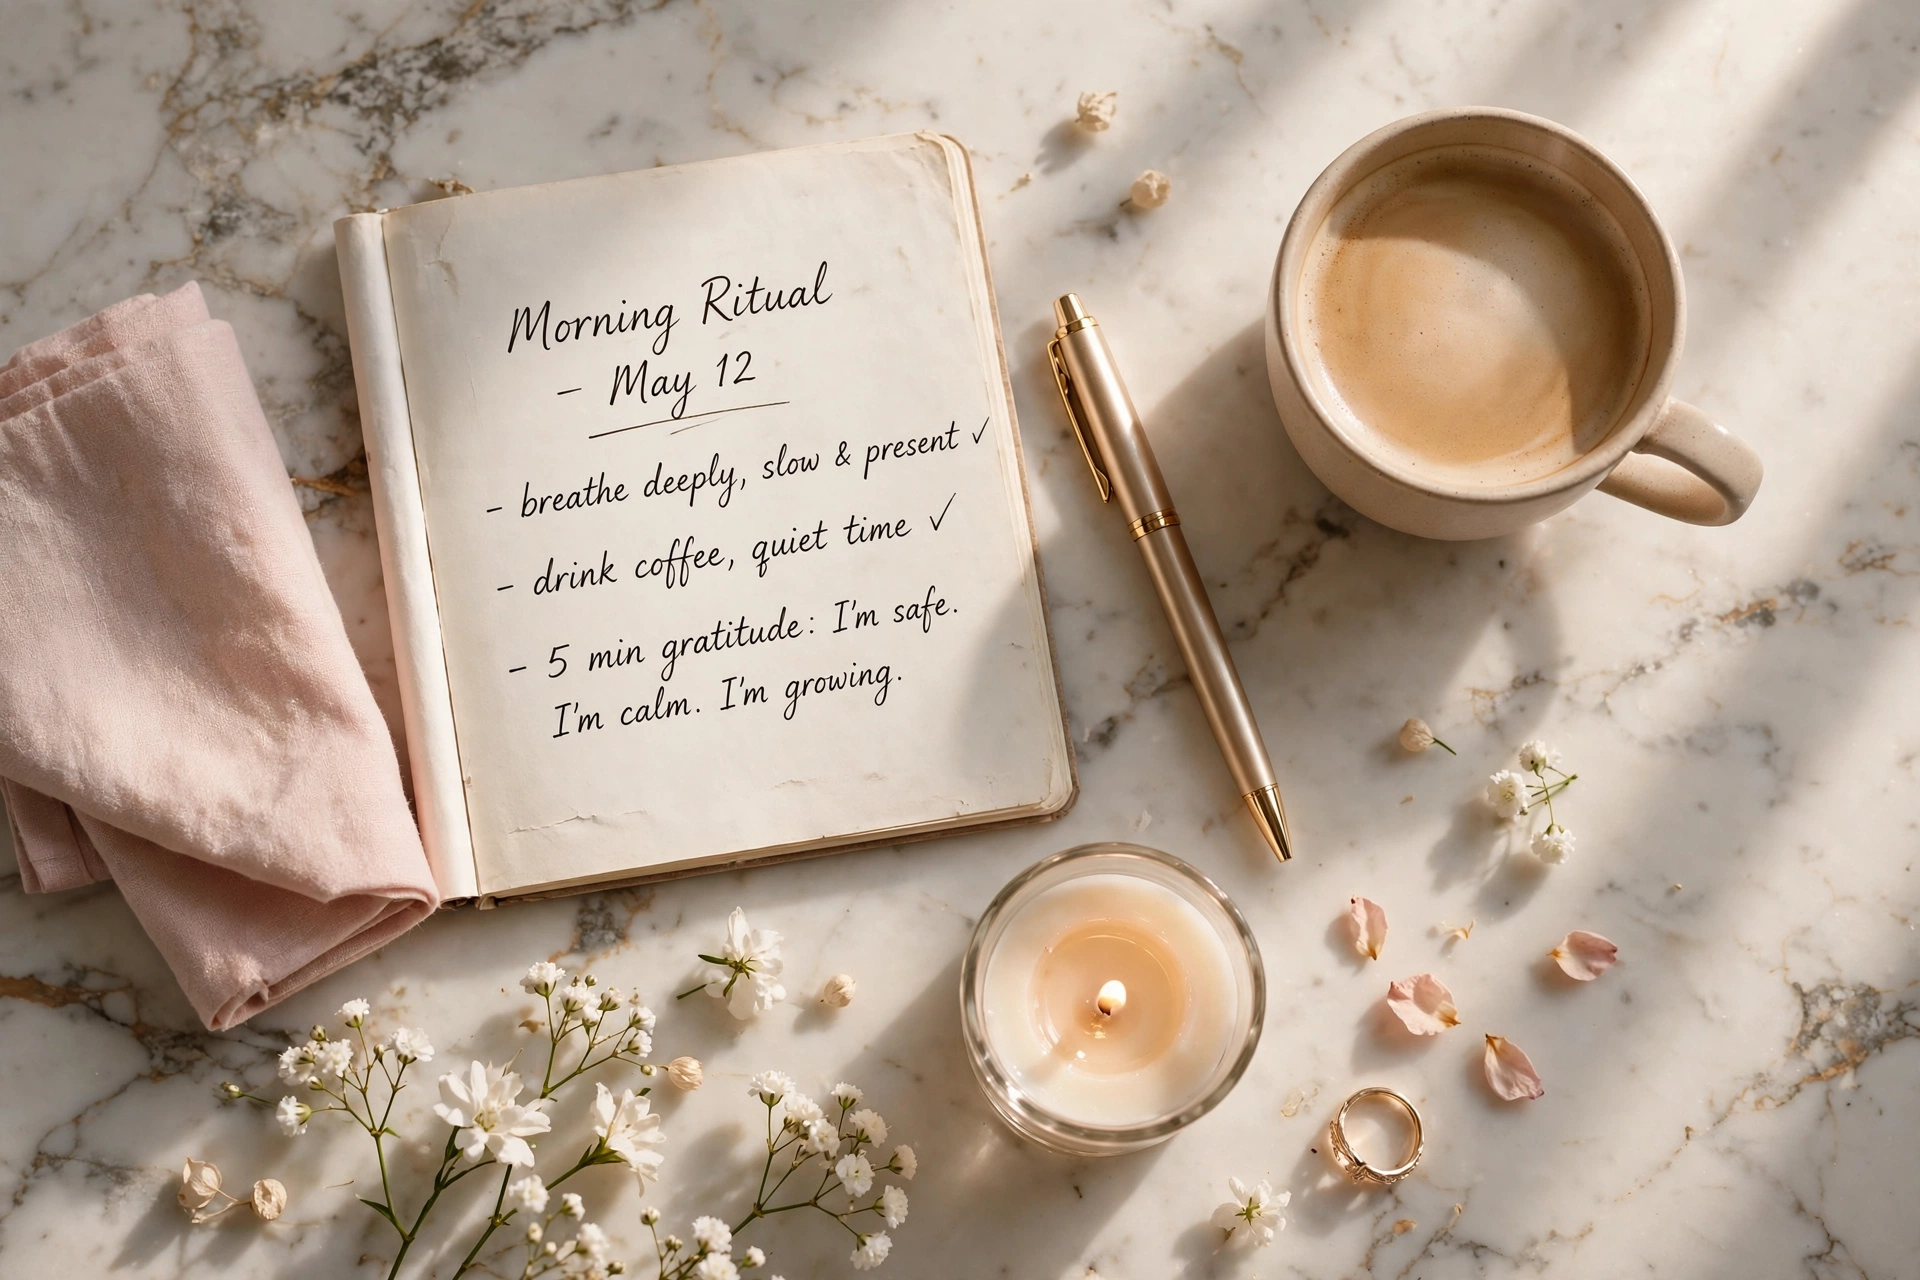 Morning Ritual
- May 12
- breathe deeply, slow & present ✓
- drink coffee, quiet time ✓
- 5 min gratitude: I'm safe.
I'm calm. I'm growing.